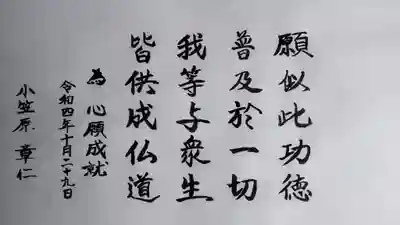 願以此功徳
普及於一切
我等与衆生
皆供成仏道
為 心願成就
令和四年十月二十九日
小笠原 章仁